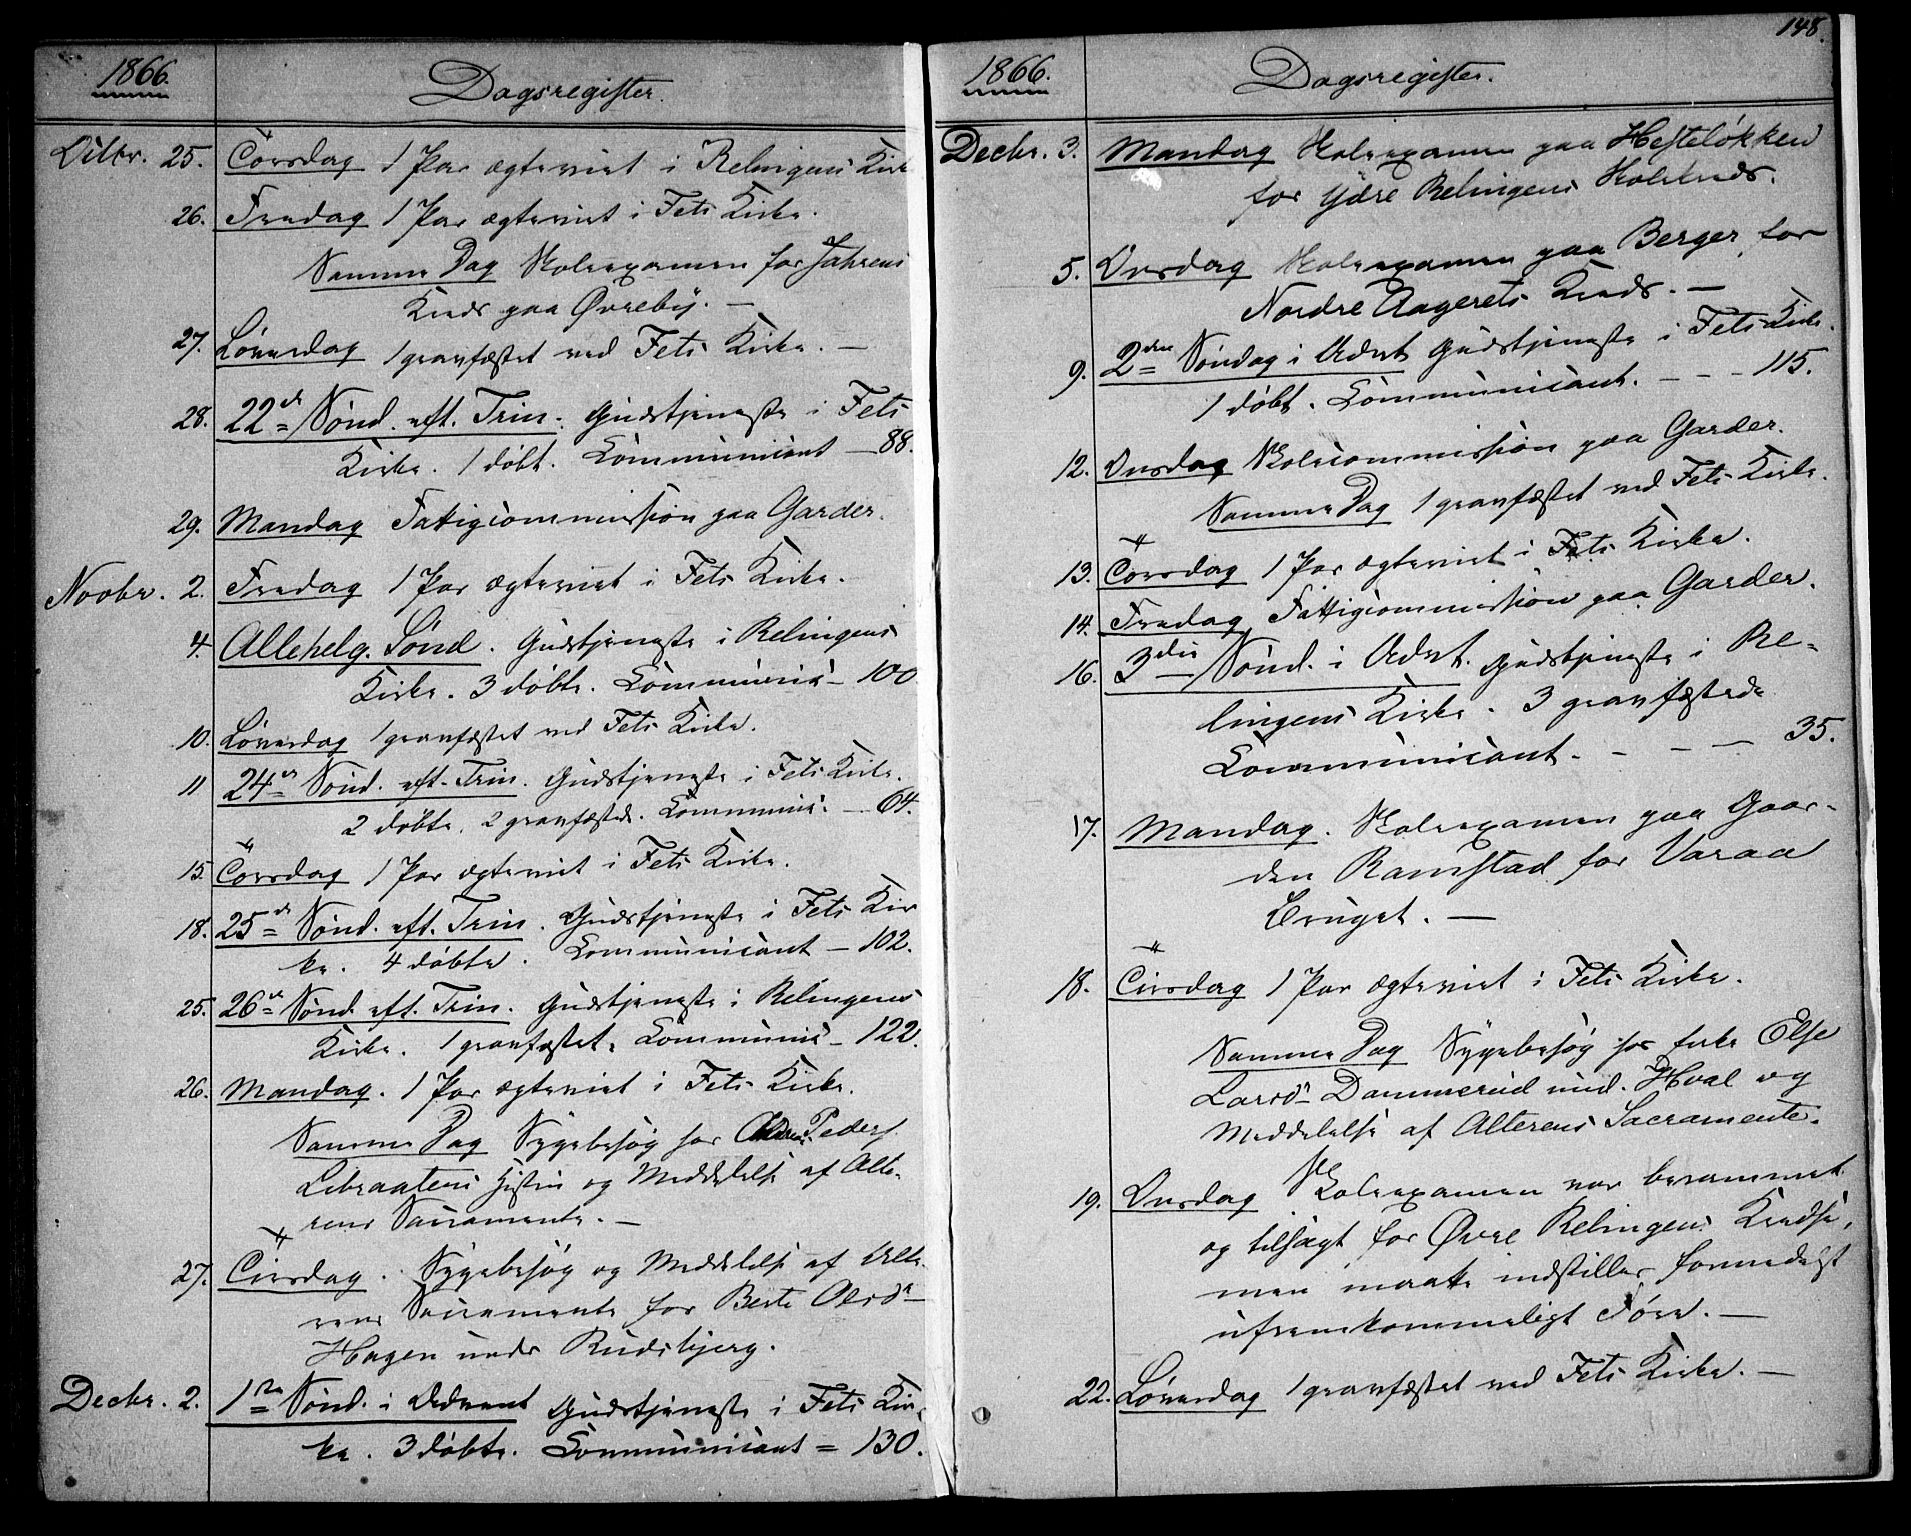 1866.
Dagsregister.
Octbr. 25. Torsdag 1 Par ægteviet i Relingens Kirk
26. Fredag 1 Par ægteviet i Fets Kirke.
Samme Dag Skoleexamen for Jahrens
Kreds paa Øvreby. —
27. Løverdag 1 gravfæstet ved Fets Kirke. —
28. 22de Sønd. eft. Trin. Gudstjeneste i Fets
Kirke. 1 døbt. Communicant — 88.
29. Mandag Fattigcommission paa Garder.
Novbr. 2. Fredag 1 Par ægteviet i Fets Kirke.
4. Allehelg. Sønd. Gudstjeneste i Relingens
Kirke. 3 døbte. Communic. — 100.
10. Løverdag 1 gravfæstet ved Fets Kirke.
11 24de Sønd. eft. Trin. Gudstjeneste i Fets Kirke.
2 døbte, 2 gravfæstede. Communic. — 64.
15. Torsdag 1 Par ægteviet i Fets Kirke.
18. 25de Sønd. eft. Trin. Gudstjeneste i Fets Kir
ke. 4 døbte. Communicant — 102.
25. 26de Sønd. eft. Trin. Gudstjeneste i Relingens
Kirke. 1 gravfæstet. Communic. — 122.
26. Mandag. 1 Par ægteviet i Fets Kirke.
Samme Dag Sygebesøg hos Peders.
og Meddelelse af Alte-
rens Sacramente. —
27. Tirsdag. Sygebesøg og Meddelelse af Alte-
rens Sacramente for Berte Olsdr
Hagen under Rudsbjerg.
Decbr. 2. 1ste Sønd. i Advent Gudstjeneste i Fets Kir-
ke. 3 døbte. Communicant = 130.
148.
1866.
Dagsregister.
Decbr. 3. Mandag Skoleexamen paa Hesteløkken
for Ydre Relingens Skolekreds.
5. Onsdag Skoleexamen paa Berger for
Nordre Aagerets Kreds. —
9. 2den Søndag i Advt Gudstjeneste i Fets Kirke.
1 døbt. Communicant. — — — 115.
12. Onsdag Skolecommission paa Garder.
Samme Dag 1 gravfæstet ved Fets Kirke.
13. Torsdag 1 Par ægteviet i Fets Kirke.
14. Fredag Fattigcommission paa Garder.
16. 3die Sønd. i Advt. Gudstjeneste i Re-
lingens Kirke. 3 gravfæstede
Communicant. — — — 35.
17. Mandag. Skoleexamen paa Gaar-
den Ramstad for Varaa
Bruget. —
18. Tirsdag 1 Par ægteviet i Fets Kirke.
Samme Dag Sygebesøg hos Enke Else
Larsdr Dammerud und. Hval og
Meddelelse af Alterens Sacramente.
19. Onsdag Skoleexamen var berammet
og tilsagt for Øvre Relingens Kreds,
men maatte indstilles formedelst
ufremkommeligt Føre. —
22. Løverdag 1 gravfæstet ved Fets Kirke. —